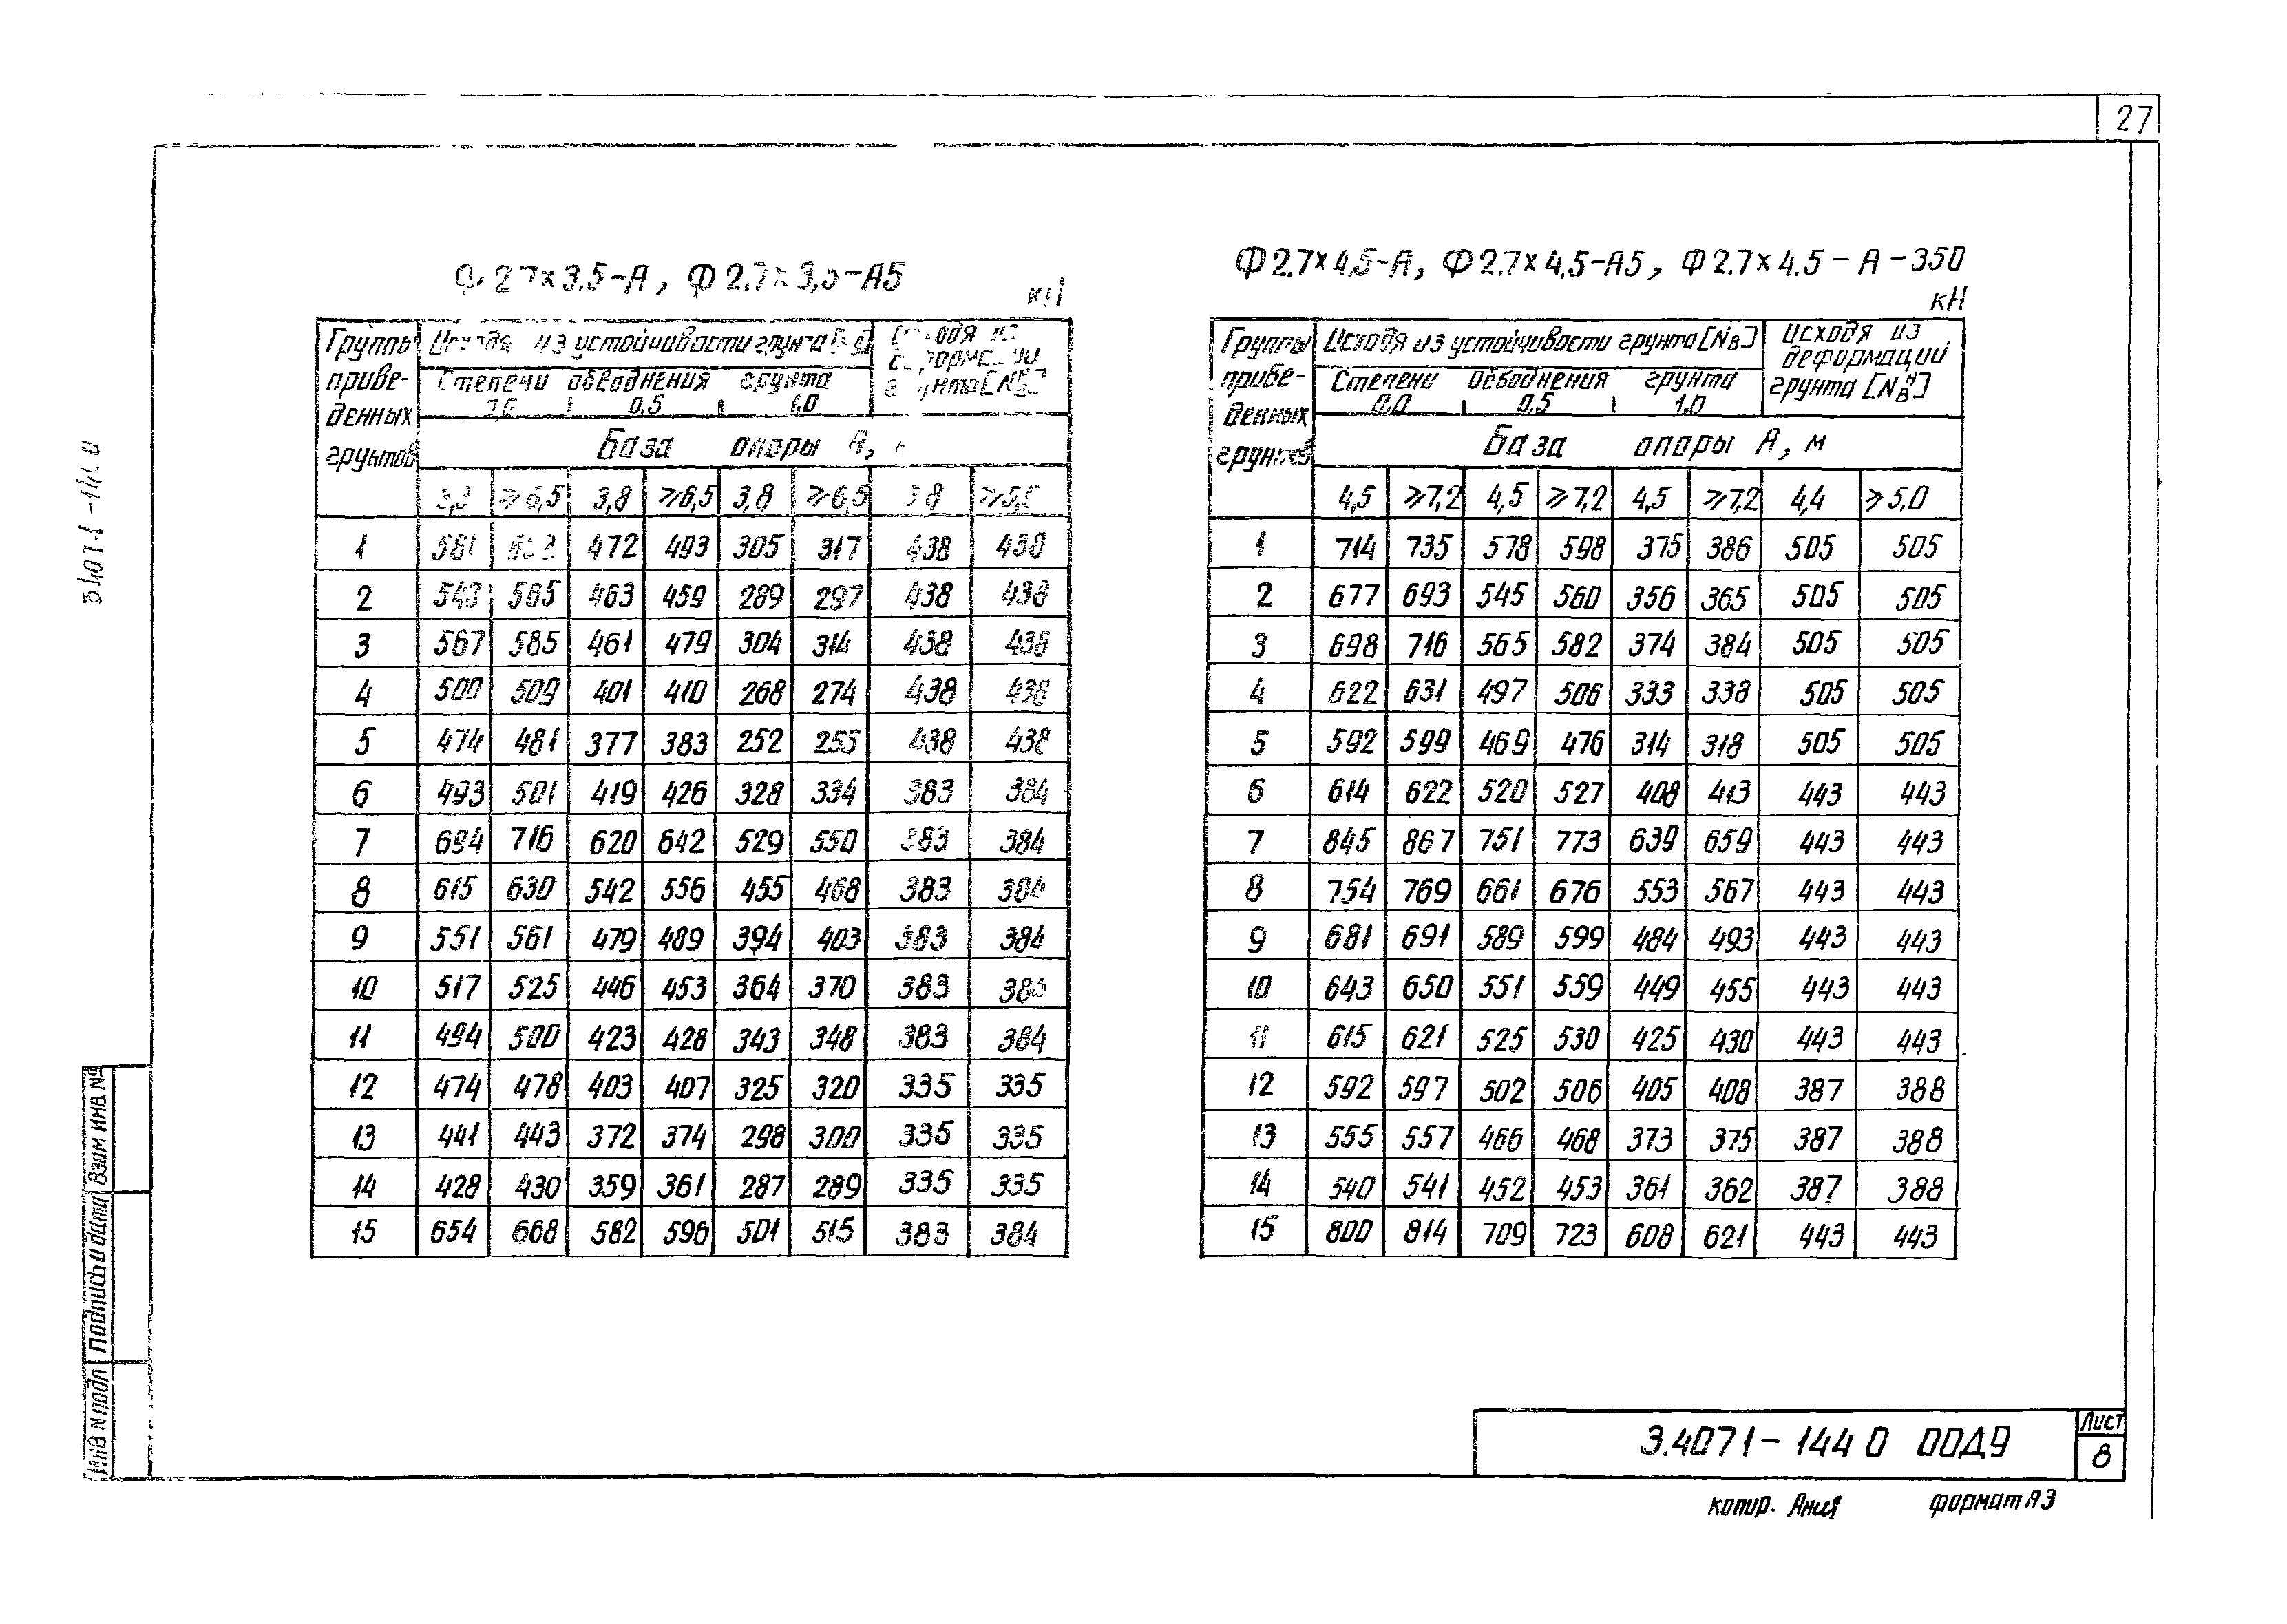 27
Ф 2.7×3.5-А, Ф 2.7×3,5-А5
кН
Группы приведенных грунтов
Исходя из устойчивости грунта
Исходя из деформации грунта [Nвⁿ]
Степени обводнения грунта
0,5 1,0
База опоры А,
3,8 ⩾6,5 3,8 ⩾6,5 3,8 ⩾6,5 3,8 ⩾5,0
1 581 472 493 305 317 438 438
2 543 565 463 459 289 297 438 438
3 567 585 461 479 304 314 438 438
4 500 509 401 410 268 274 438 438
5 474 481 377 383 252 255 438 438
6 493 501 419 426 328 334 383 384
7 694 716 620 642 529 550 383 384
8 615 630 542 556 455 468 383 384
9 551 561 479 489 394 403 383 384
10 517 525 446 453 364 370 383 383
11 494 500 423 428 343 348 383 384
12 474 478 403 407 325 320 335 335
13 441 443 372 374 298 300 335 335
14 428 430 359 361 287 289 335 335
15 654 668 582 596 501 515 383 384
Ф 2.7×4,5-А, Ф 2.7×4,5-А5, Ф 2.7×4.5-А-350
кН
Группы приведенных грунтов
Исходя из устойчивости грунта [Nв]
Исходя из деформации грунта [Nвⁿ]
Степени обводнения грунта
0,0 0,5 1,0
База опоры А, м
4,5 ⩾7,2 4,5 ⩾7,2 4,5 ⩾7,2 4,4 ⩾5,0
1 714 735 578 598 375 386 505 505
2 677 693 545 560 356 365 505 505
3 698 716 565 582 374 384 505 505
4 622 631 497 506 333 338 505 505
5 592 599 469 476 314 318 505 505
6 614 622 520 527 408 413 443 443
7 845 867 751 773 639 659 443 443
8 754 769 661 676 553 567 443 443
9 681 691 589 599 484 493 443 443
10 643 650 551 559 449 455 443 443
11 615 621 525 530 425 430 443 443
12 592 597 502 506 405 408 387 388
13 555 557 466 468 373 375 387 388
14 540 541 452 453 361 362 387 388
15 800 814 709 723 608 621 443 443
Взам инв. №
Подпись и дата
Инв N подл
3.4071-144 0 00Д9
Лист
8
копир. Ания формат А3